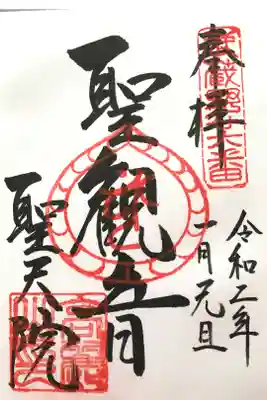 奉拝
令和二年
一月元旦
聖観音
聖天院